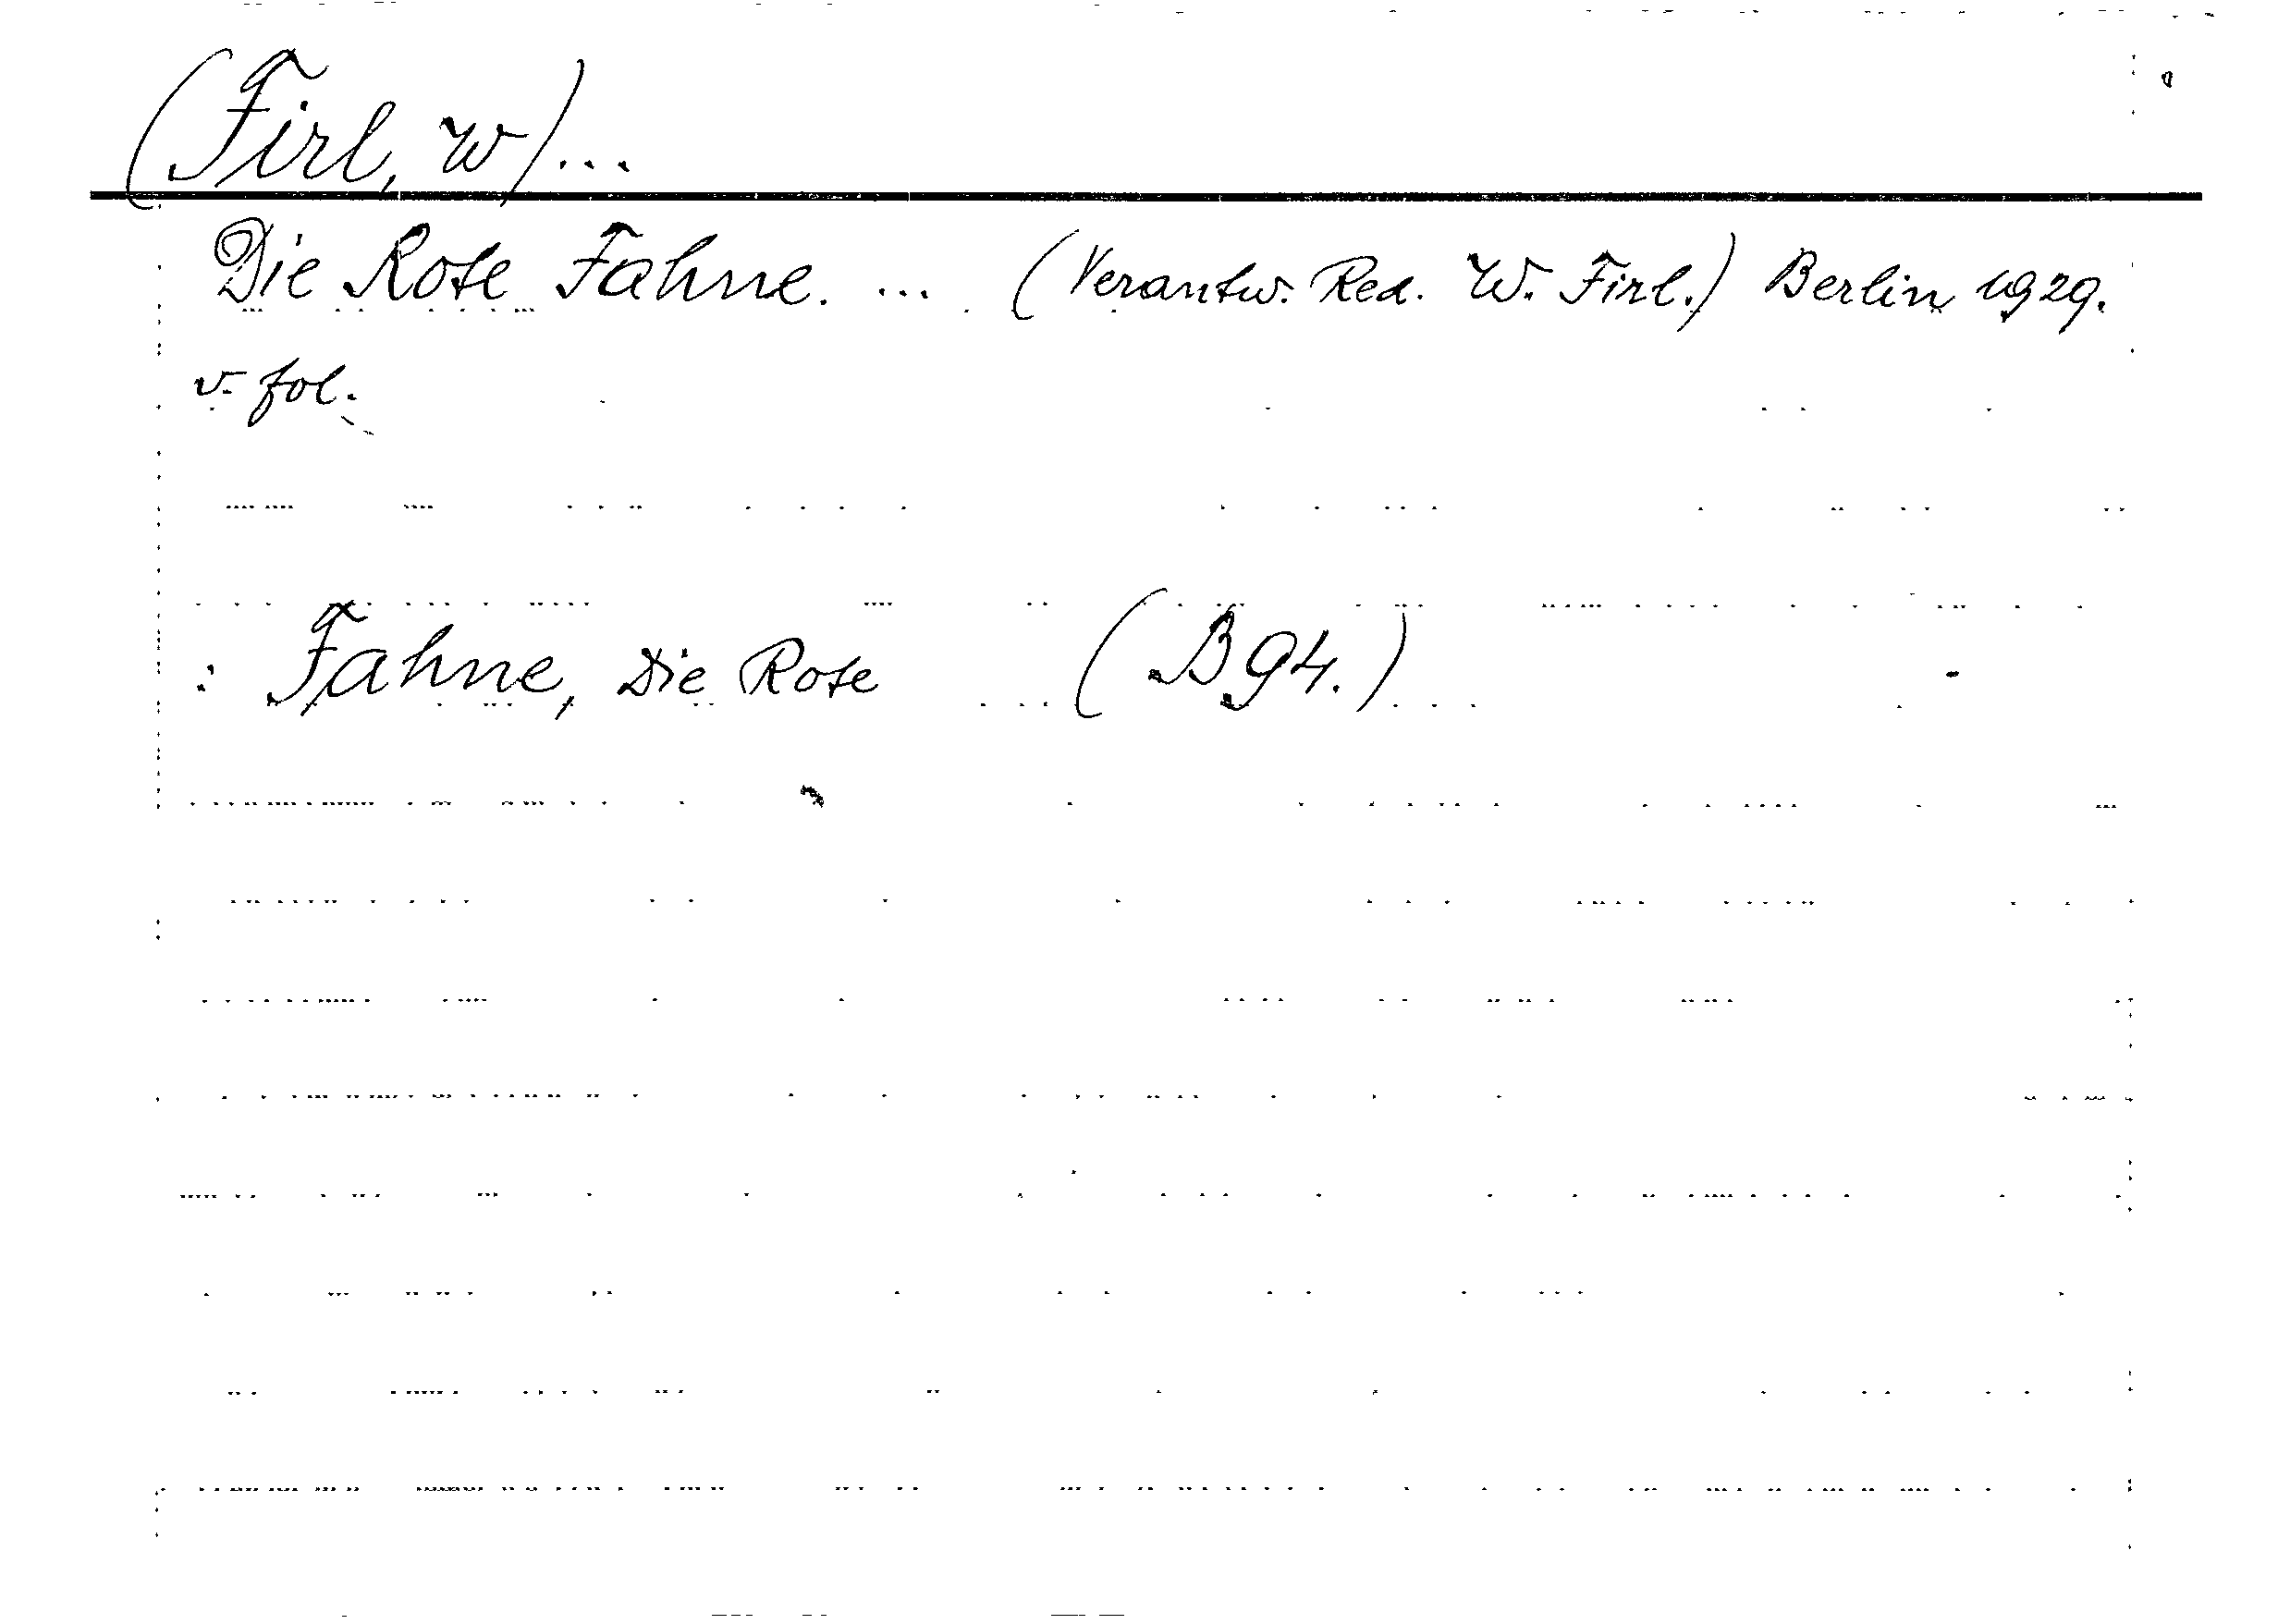 (Firl, W)...
Die Rote Fahne. ... (Verantw. Red. W. Firl.) Berlin 1929.
v. fol.
: Fahne, Die Rote (B94.)